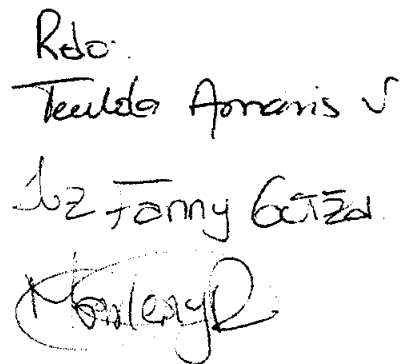 Rdo.
Teulda Amaris V
Luz Fanny
Marleny R